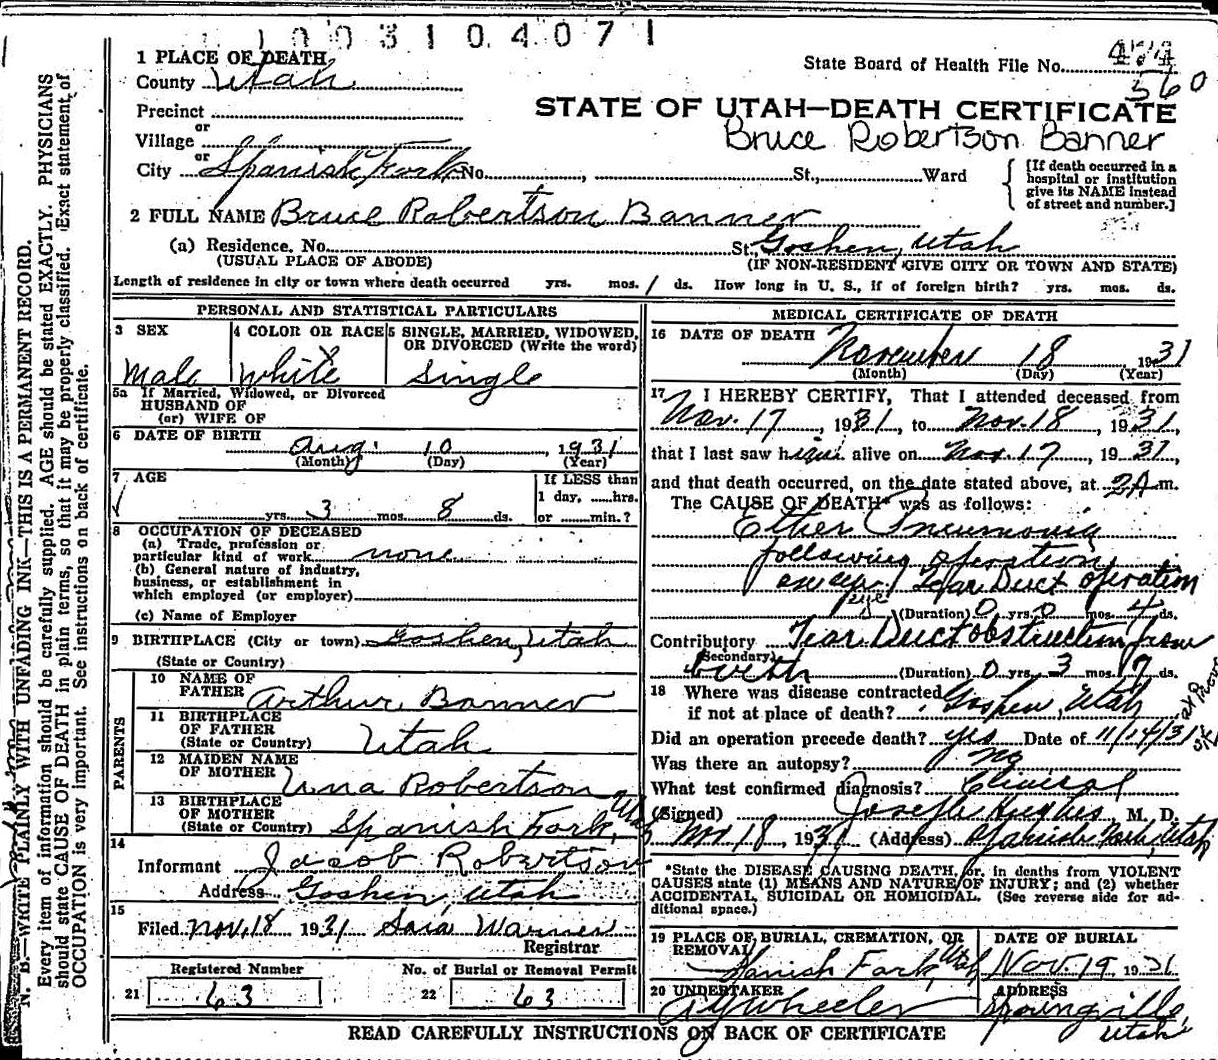 1003104071
1 PLACE OF DEATH
County Utah
State Board of Health File No. 474
560
Precinct
STATE OF UTAH—DEATH CERTIFICATE
or
Village
Bruce Robertson Banner
or
City Spanish Fork No. , St., Ward
[If death occurred in a hospital or institution give its NAME instead of street and number.]
2 FULL NAME Bruce Robertson Banner
(a) Residence. No. St., Goshen, Utah
(USUAL PLACE OF ABODE) (IF NON-RESIDENT GIVE CITY OR TOWN AND STATE)
Length of residence in city or town where death occurred yrs. mos. 1 ds. How long in U. S., if of foreign birth? yrs. mos. ds.
PERSONAL AND STATISTICAL PARTICULARS
3 SEX
Male
4 COLOR OR RACE
White
5 SINGLE, MARRIED, WIDOWED, OR DIVORCED (Write the word)
Single
5a If Married, Widowed, or Divorced
HUSBAND OF
(or) WIFE OF
6 DATE OF BIRTH
Aug. 10, 1931
(Month) (Day) (Year)
7 AGE
yrs. 3 mos. 8 ds.
If LESS than
1 day, ......hrs.
or ......min.?
8 OCCUPATION OF DECEASED
(a) Trade, profession or
particular kind of work none
(b) General nature of industry,
business, or establishment in
which employed (or employer)
(c) Name of Employer
9 BIRTHPLACE (City or town) Goshen, Utah
(State or Country)
PARENTS
10 NAME OF
FATHER Arthur Banner
11 BIRTHPLACE
OF FATHER
(State or Country) Utah
12 MAIDEN NAME
OF MOTHER Una Robertson
13 BIRTHPLACE
OF MOTHER
(State or Country) Spanish Fork, Utah
14
Informant Jacob Robertson
Address Goshen, Utah
15
Filed Nov. 18 1931 Sara Warner
Registrar
Registered Number
21 63
No. of Burial or Removal Permit
22 63
MEDICAL CERTIFICATE OF DEATH
16 DATE OF DEATH November 18 1931
(Month) (Day) (Year)
17 I HEREBY CERTIFY, That I attended deceased from
Nov. 17, 1931, to Nov. 18, 1931,
that I last saw him alive on Nov. 17, 1931,
and that death occurred, on the date stated above, at 2A m.
The CAUSE OF DEATH* was as follows:
Ether Pneumonia
following operation
on eye / Tear Duct operation
eye
(Duration) 0 yrs. 0 mos. 4 ds.
Contributory Tear Duct obstruction from
(Secondary)
birth (Duration) 0 yrs. 3 mos. 17 ds.
18 Where was disease contracted
if not at place of death? Goshen, Utah
Did an operation precede death? yes Date of 11/14/31
Was there an autopsy? No
What test confirmed diagnosis? Clinical
(Signed) Joseph Hughes, M. D.
Nov 18 1931 (Address) Spanish Fork, Utah
*State the DISEASE CAUSING DEATH, or, in deaths from VIOLENT
CAUSES state (1) MEANS AND NATURE OF INJURY; and (2) whether
ACCIDENTAL, SUICIDAL OR HOMICIDAL. (See reverse side for ad-
ditional space.)
19 PLACE OF BURIAL, CREMATION, OR
REMOVAL
Spanish Fork, Utah
DATE OF BURIAL
Nov 19 1931
20 UNDERTAKER
A Y Wheeler
ADDRESS
Springville, Utah
READ CAREFULLY INSTRUCTIONS ON BACK OF CERTIFICATE
N. B.—WRITE PLAINLY WITH UNFADING INK—THIS IS A PERMANENT RECORD.
Every item of information should be carefully supplied. AGE should be stated EXACTLY. PHYSICIANS
should state CAUSE OF DEATH in plain terms, so that it may be properly classified. Exact statement of
OCCUPATION is very important. See instructions on back of certificate.